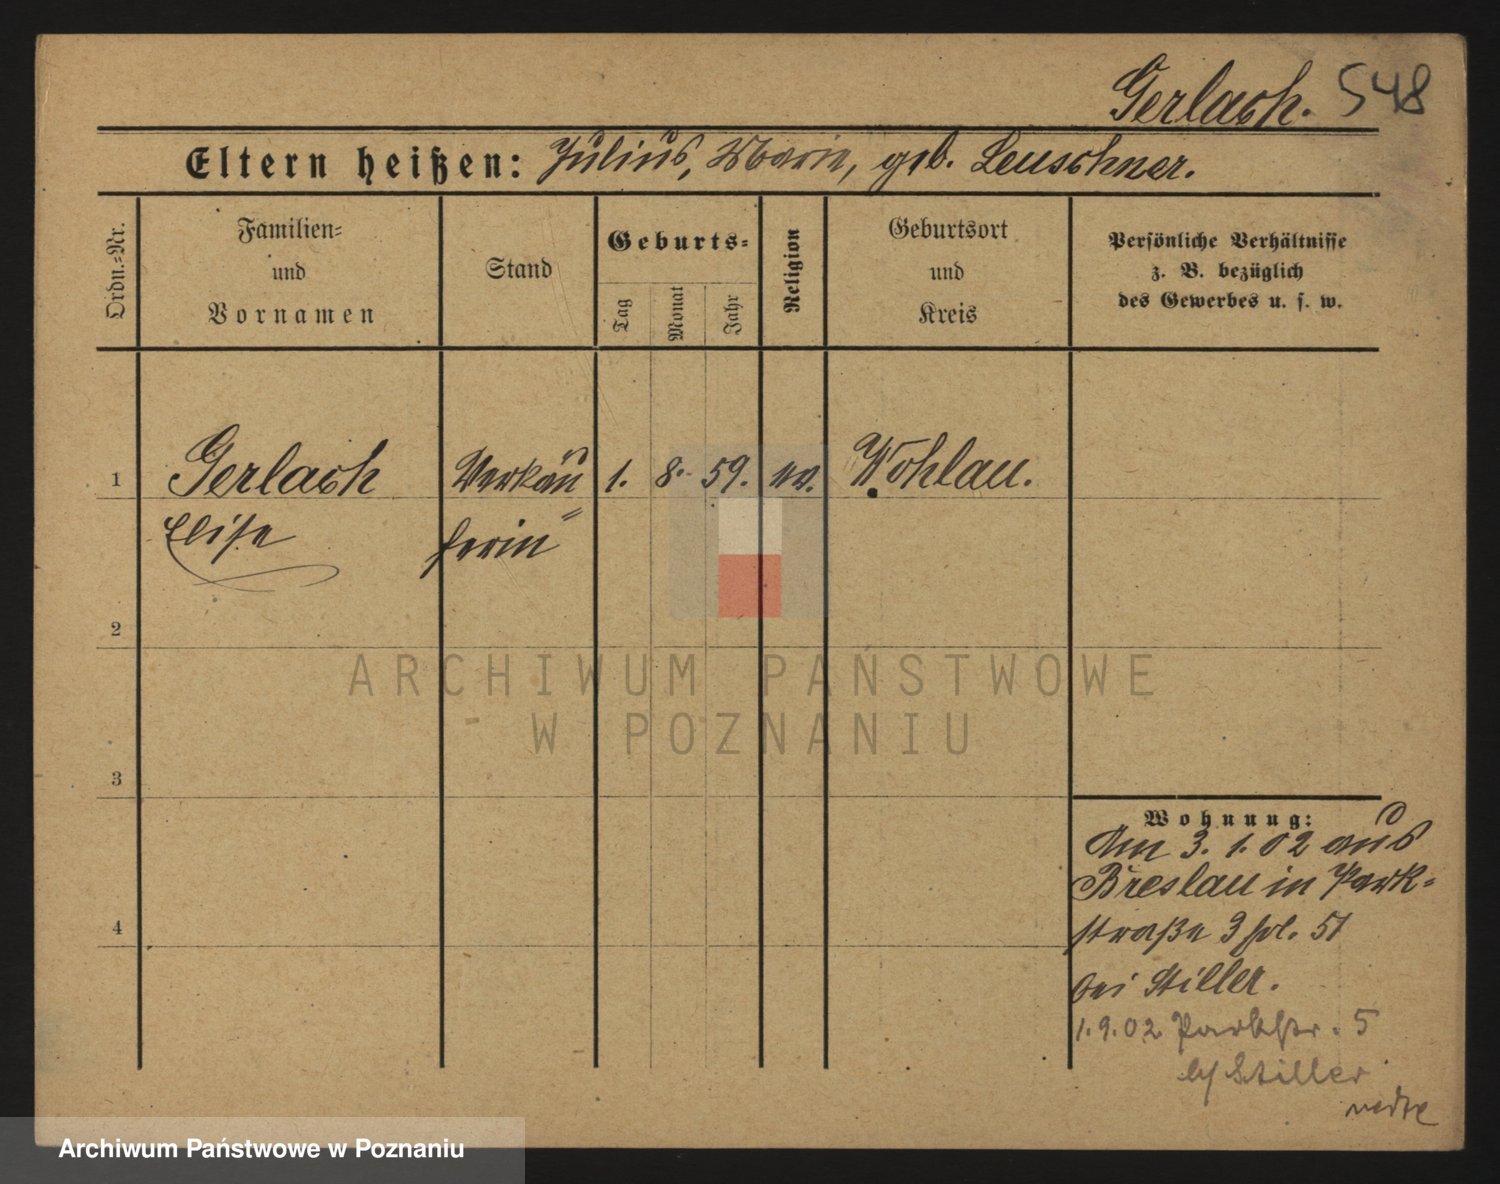 Gerlach. 548
Eltern heißen: Julius, Marie, geb. Leuschner.
Ordn.-Nr.
Familien-
und
Vornamen
Stand
Geburts-
Tag
Monat
Jahr
Religion
Geburtsort
und
Kreis
Persönliche Verhältnisse
z. B. bezüglich
des Gewerbes u. s. w.
1 Gerlach Verkäu 1. 8. 59. ev. Wohlau.
Elise ferin
2
3
4
Wohnung:
Am 3. 1. 02 aus
Breslau in Park-
straße 3
bei Stiller.
1.9.02 Parkstr. 5
b/ Stiller
ARCHIWUM PAŃSTWOWE
W POZNANIU
Archiwum Państwowe w Poznaniu